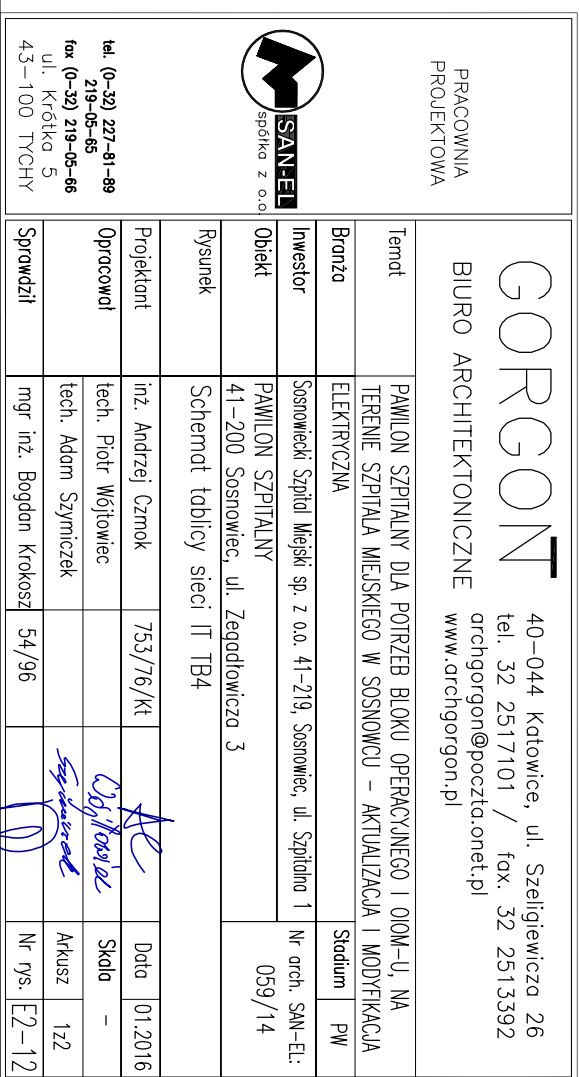 GORGON
BIURO ARCHITEKTONICZNE
40-044 Katowice, ul. Szeligiewicza 26
tel. 32 2517101 / fax. 32 2513392
archgorgon@poczta.onet.pl
www.archgorgon.pl
PRACOWNIA
PROJEKTOWA
SAN-EL
spółka z o.o.
tel. (0-32) 227-81-89
219-05-65
fax (0-32) 219-05-66
ul. Krótka 5
43-100 TYCHY
Temat
PAWILON SZPITALNY DLA POTRZEB BLOKU OPERACYJNEGO I OIOM-U, NA
TERENIE SZPITALA MIEJSKIEGO W SOSNOWCU - AKTUALIZACJA I MODYFIKACJA
Branża ELEKTRYCZNA Stadium PW
Inwestor Sosnowiecki Szpital Miejski sp. z o.o. 41-219, Sosnowiec, ul. Szpitalna 1
Nr arch. SAN-EL:
059/14
Obiekt PAWILON SZPITALNY
41-200 Sosnowiec, ul. Zegadłowicza 3
Rysunek Schemat tablicy sieci IT TB4
Projektant inż. Andrzej Czmok 753/76/Kt Data 01.2016
Opracował tech. Piotr Wójtowiec Wójtowiec Skala -
tech. Adam Szymiczek Arkusz 1z2
Sprawdził mgr inż. Bogdan Krokosz 54/96 Nr rys. E2-12